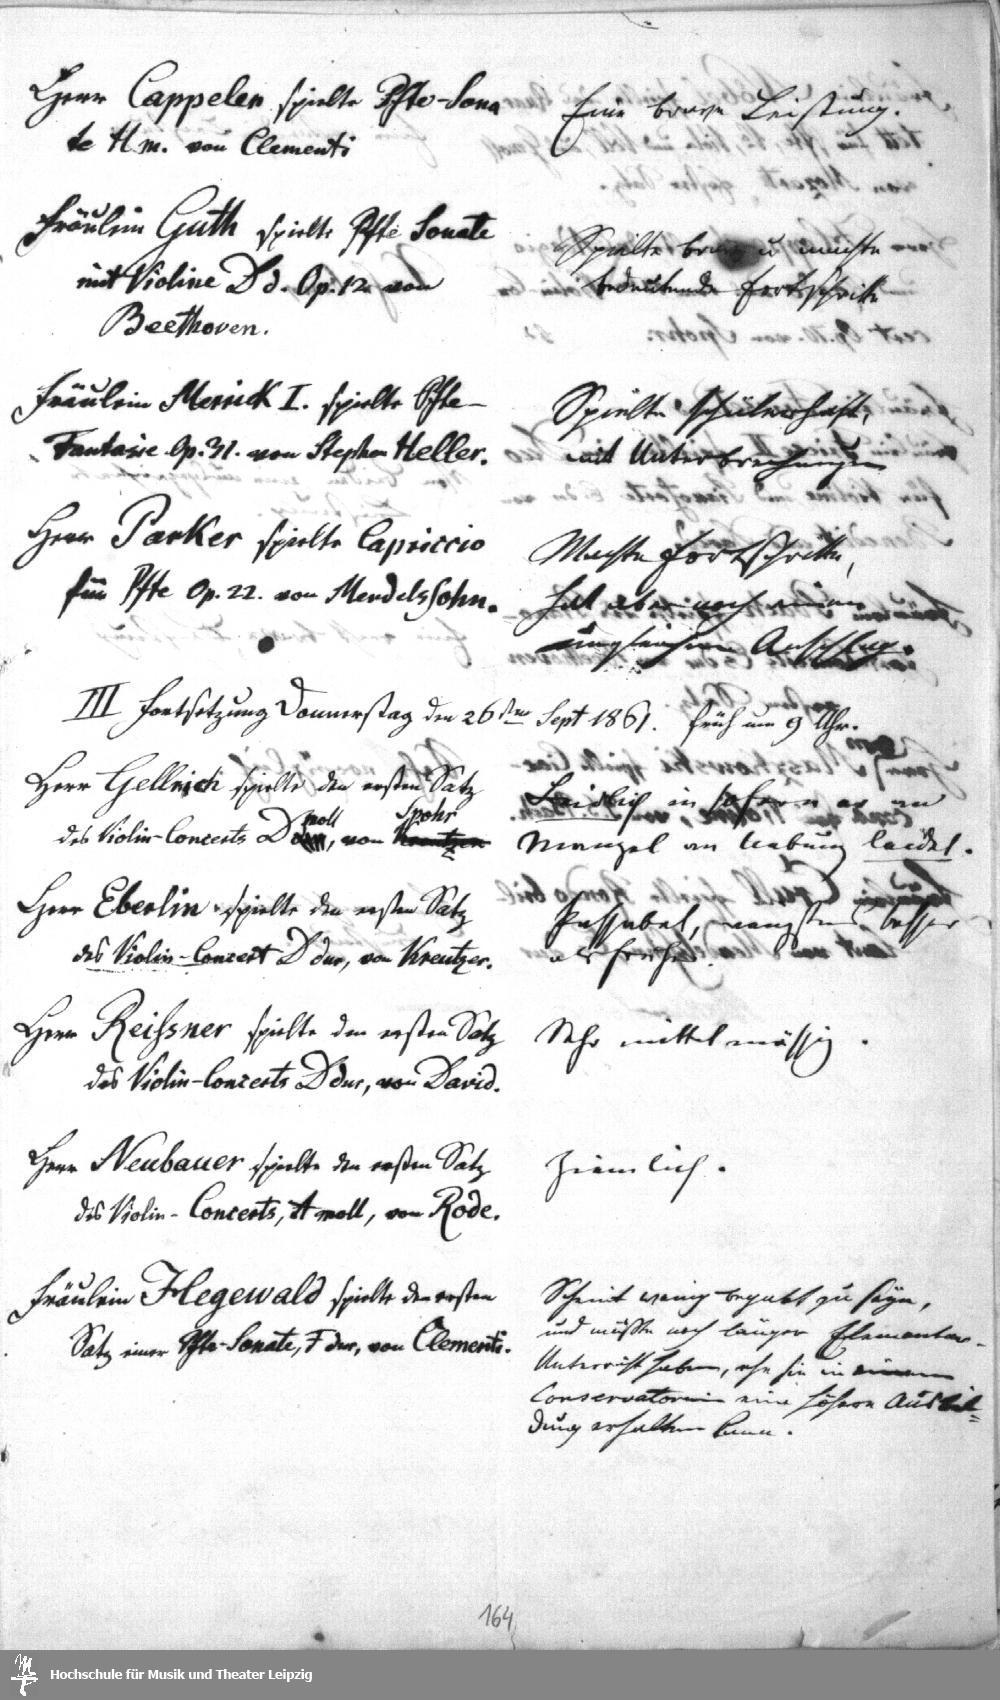 Herr Cappelen spielte Pfte-Sona
te H m. von Clementi
Eine brave Leistung.
Fräulein Guth spielte Pfte Sonate
mit Violine D d. Op. 12 von
Beethoven.
Spielte brav u machte
bedeutende Fortschritte
Fräulein Merrick I. spielte Pfte-
Fantasie Op. 31. von Stephen Heller.
Spielte schülerhaft,
mit Unterbrechungen
Herr Parker spielte Capriccio
für Pfte Op. 22. von Mendelssohn.
Machte Fortschritte,
hat aber noch einen
ungleichen Anschlag.
III Fortsetzung Donnerstag den 26sten Sept 1861. früh um 9 Uhr.
Herr Gellrich spielte den ersten Satz
des Violin-Concerts D moll, von Spohr
Leidlich in sofern er an
Mangel an Uebung leidet.
Herr Eberlin spielte den ersten Satz
des Violin-Concert D dur, von Kreutzer.
Passabel, wenigstens besser
als früher.
Herr Reissner spielte den ersten Satz
des Violin-Concerts D dur, von David.
Sehr mittelmässig.
Herr Neubauer spielte den ersten Satz
des Violin-Concerts, A moll, von Rode.
Ziemlich.
Fräulein Hegewald spielte den ersten
Satz einer Pfte-Sonate, F dur, von Clementi.
Scheint wenig begabt zu seyn,
und müsste noch länger Elementar-
Unterricht haben, ehe sie in einem
Conservatorium eine höhere Ausbil=
dung erhalten kann.
164
Hochschule für Musik und Theater Leipzig